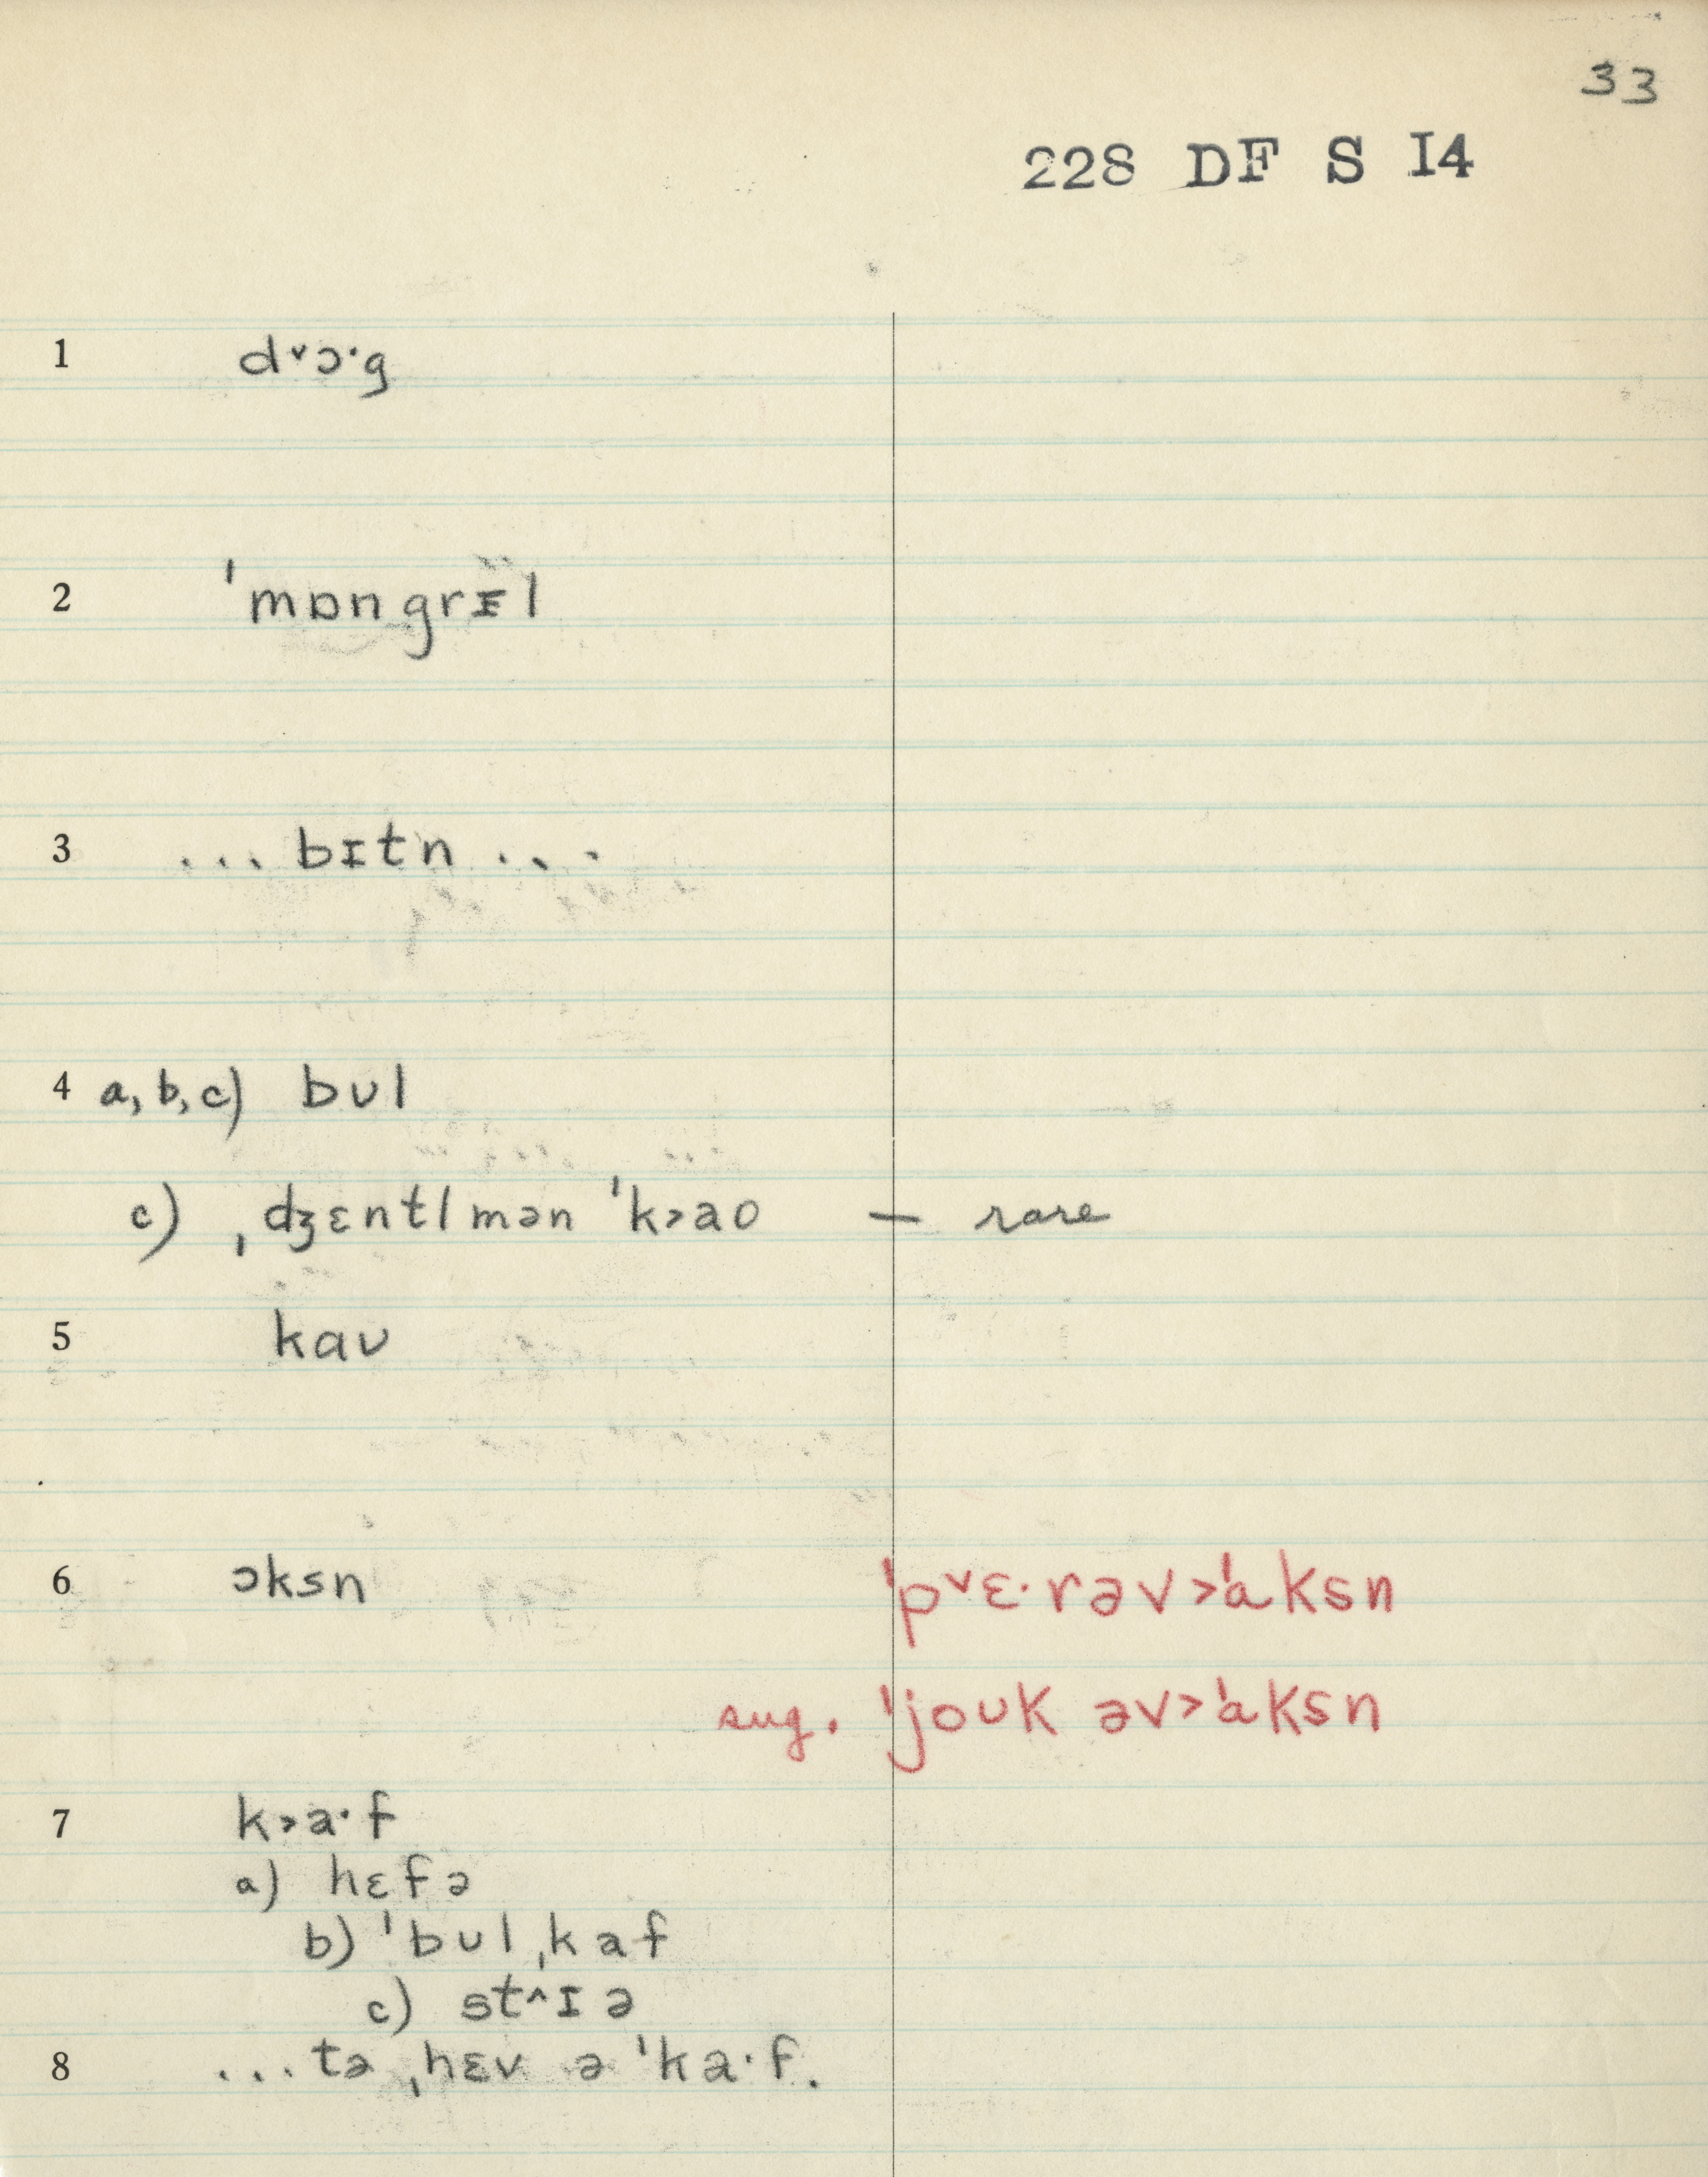 33
228 DF S I4
1 dᵛɔ·g
2 ˈmɒngrɪ̵l
3 ... bɪtn ...
4 a, b, c) bʊl
c) ˌdʒɛntlmən ˈk˃aʊ — rare
5 kaʊ
6 ɔksn ˈpᵛɛ·rəv˃ˈɑksn
sug. ˈjoʊk əv˃ˈɑksn
7 k˃a·f
a) hɛfə
b) ˈbʊlˌkaf
c) st^ɪə
8 ...təˌhɛv ə ˈka·f.